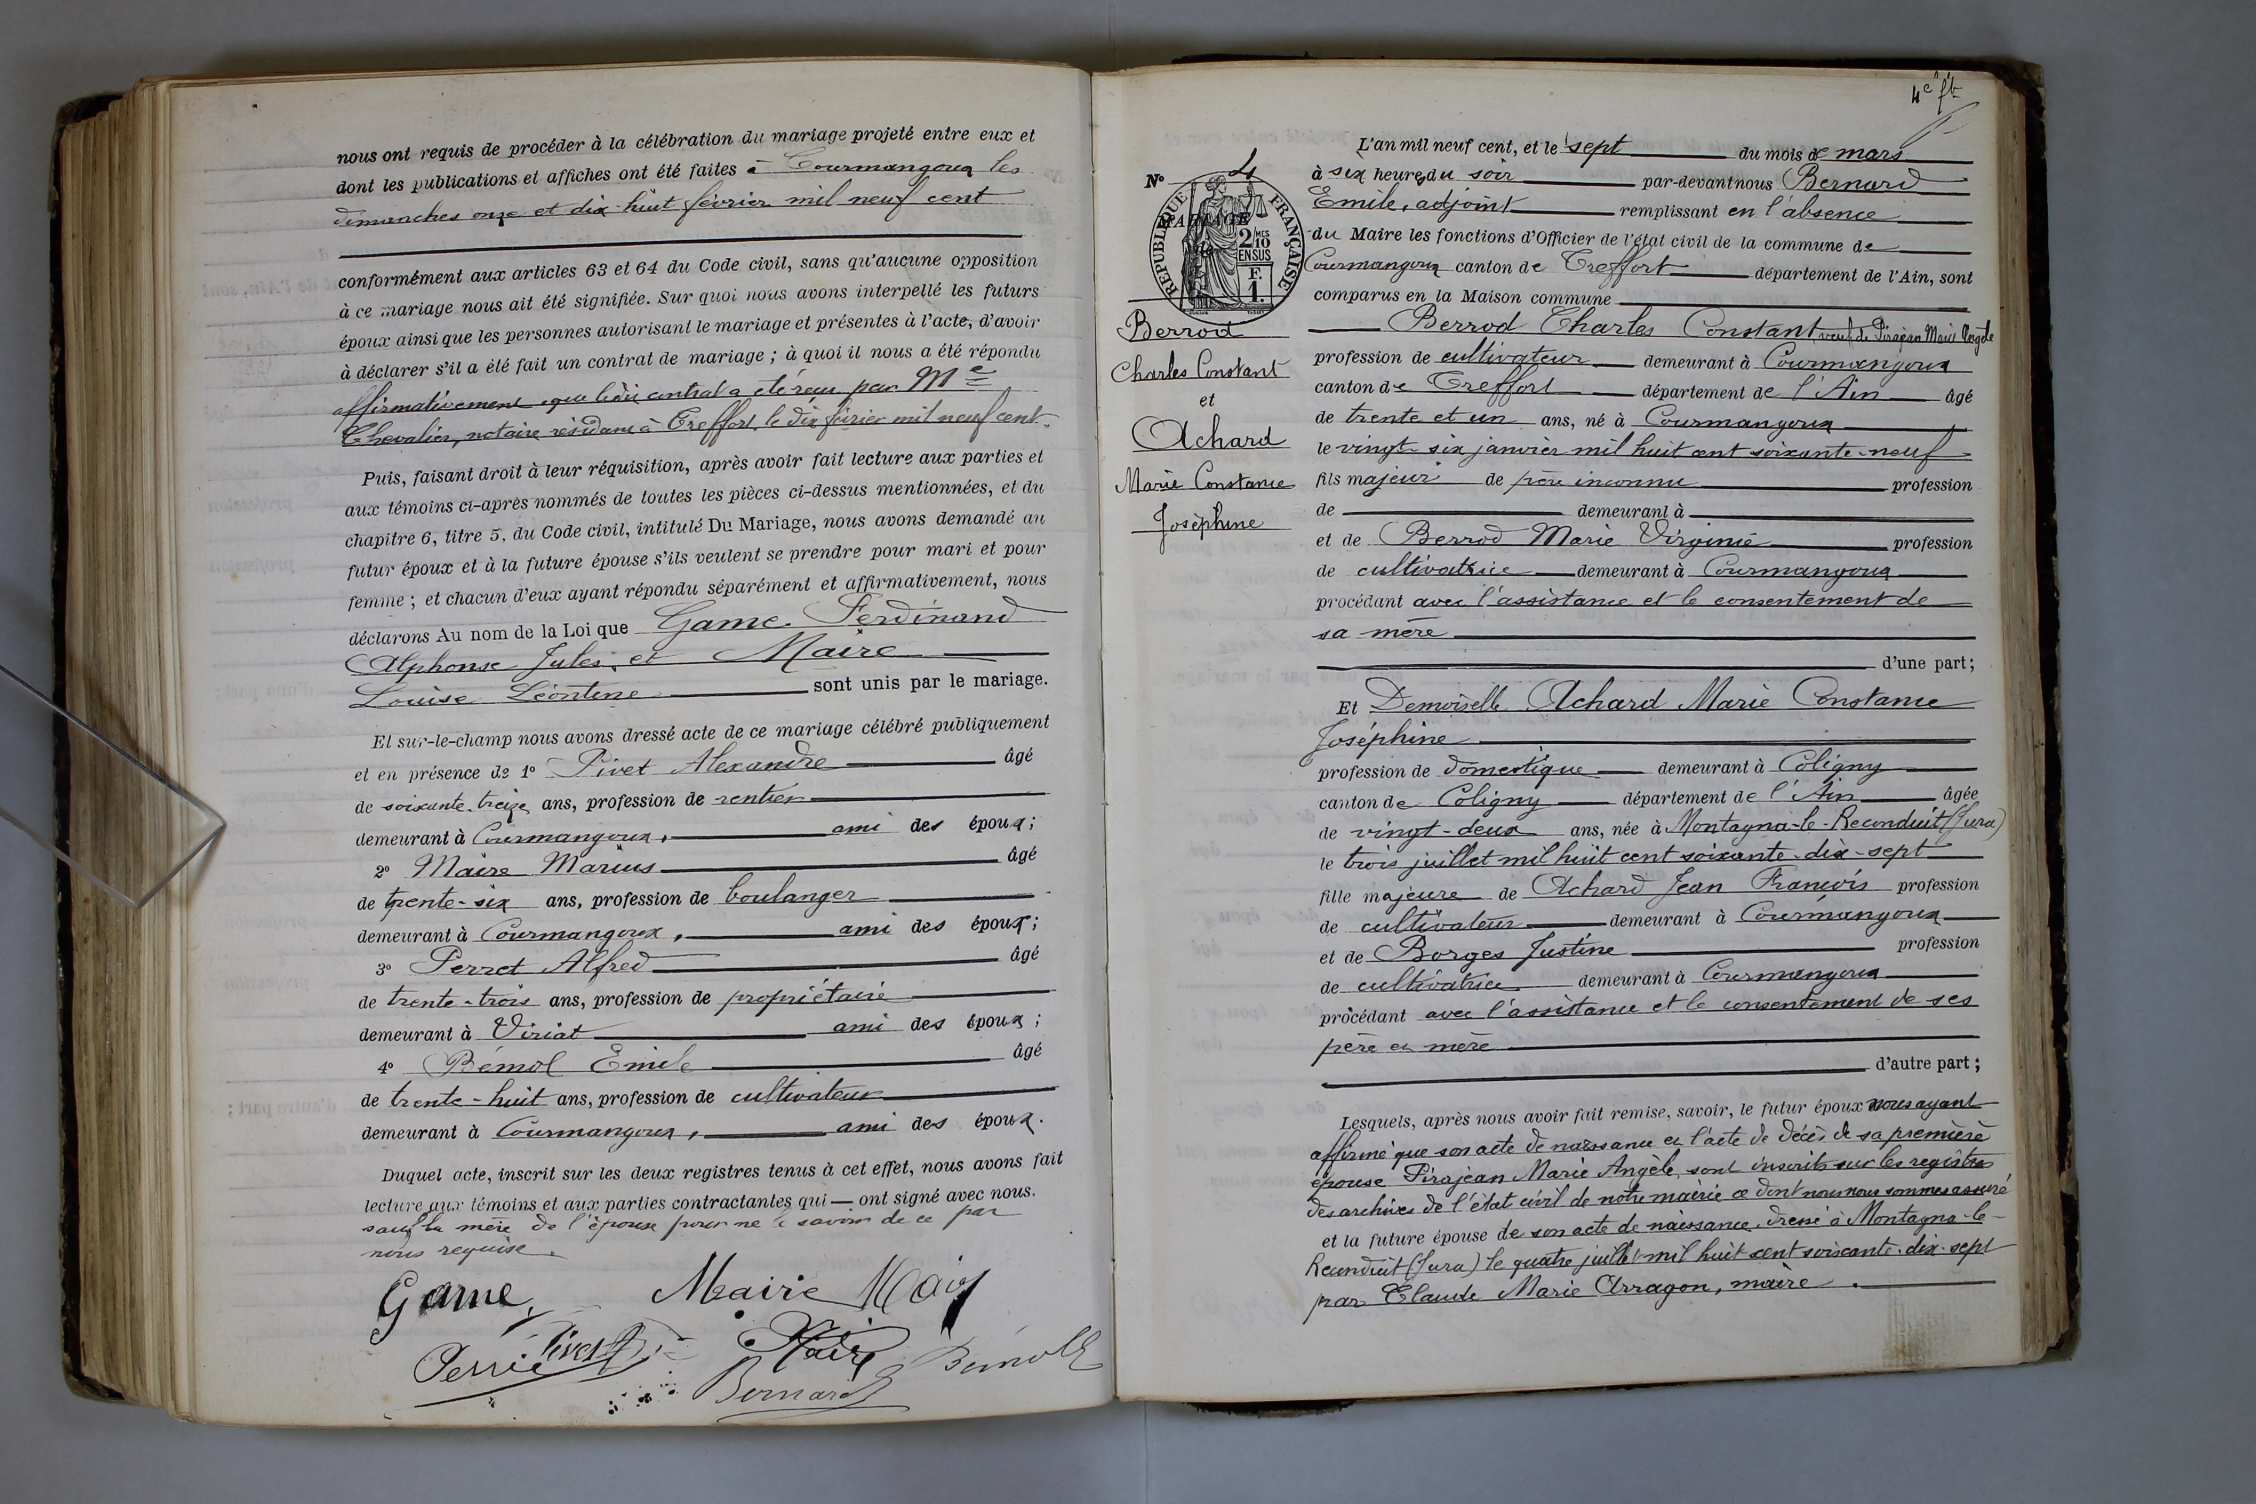 nous ont requis de procéder à la célébration du mariage projeté entre eux et
dont les publications et affiches ont été faites à Courmangoux les
dimanches onze et dix-huit février mil neuf cent
conformément aux articles 63 et 64 du Code civil, sans qu'aucune opposition
à ce mariage nous ait été signifiée. Sur quoi nous avons interpellé les futurs
époux ainsi que les personnes autorisant le mariage et présentes à l'acte, d'avoir
à déclarer s'il a été fait un contrat de mariage ; à quoi il nous a été répondu
affirmativement que le dit contrat a été reçu par Me
Chevalier, notaire résidant à Treffort, le dix février mil neuf cent.
Puis, faisant droit à leur réquisition, après avoir fait lecture aux parties et
aux témoins ci-après nommés de toutes les pièces ci-dessus mentionnées, et du
chapitre 6, titre 5, du Code civil, intitulé Du Mariage, nous avons demandé au
futur époux et à la future épouse s'ils veulent se prendre pour mari et pour
femme ; et chacun d'eux ayant répondu séparément et affirmativement, nous
déclarons Au nom de la Loi que Game Ferdinand
Alphonse Jules, et Maire
Louise Léontine sont unis par le mariage.
Et sur-le-champ nous avons dressé acte de ce mariage célébré publiquement
et en présence de 1° Pivet Alexandre âgé
de soixante-treize ans, profession de rentier
demeurant à Courmangoux, ami des époux ;
2° Maire Marius âgé
de trente-six ans, profession de boulanger
demeurant à Courmangoux, ami des époux ;
3° Perret Alfred âgé
de trente-trois ans, profession de propriétaire
demeurant à Viriat ami des époux ;
4° Bémol Emile âgé
de trente-huit ans, profession de cultivateur
demeurant à Courmangoux, ami des époux.
Duquel acte, inscrit sur les deux registres tenus à cet effet, nous avons fait
lecture aux témoins et aux parties contractantes qui — ont signé avec nous.
sauf la mère de l'épouse pour ne le savoir de ce par
nous requise.
Game Maire
Pivet Maire
Bernard
4e ft
N° 4
MARIAGE
RÉPUBLIQUE FRANÇAISE
2/10 MES
EN SUS
F
1.
Berrod
Charles Constant
et
Achard
Marie Constance
Joséphine
L'an mil neuf cent, et le sept du mois de mars
à six heures du soir par-devant nous Bernard
Emile, adjoint remplissant en l'absence
du Maire les fonctions d'Officier de l'état civil de la commune de
Courmangoux canton de Treffort département de l'Ain, sont
comparus en la Maison commune
Berrod Charles Constant veuf de Pirajean Marie Angèle
profession de cultivateur demeurant à Courmangoux
canton de Treffort département de l'Ain âgé
de trente et un ans, né à Courmangoux
le vingt-six janvier mil huit cent soixante-neuf
fils majeur de père inconnu profession
de demeurant à
et de Berrod Marie Virginie profession
de cultivatrice demeurant à Courmangoux
procédant avec l'assistance et le consentement de
sa mère
d'une part ;
Et Demoiselle Achard Marie Constance
Joséphine
profession de domestique demeurant à Coligny
canton de Coligny département de l'Ain âgée
de vingt-deux ans, née à Montagna-le-Reconduit (Jura)
le trois juillet mil huit cent soixante-dix-sept
fille majeure de Achard Jean François profession
de cultivateur demeurant à Courmangoux
et de Borges Justine profession
de cultivatrice demeurant à Courmangoux
procédant avec l'assistance et le consentement de ses
père et mère
d'autre part ;
Lesquels, après nous avoir fait remise, savoir, le futur époux nous ayant
affirmé que son acte de naissance et l'acte de décès de sa première
épouse Pirajean Marie Angèle, sont inscrits sur les registres
des archives de l'état civil de notre mairie ce dont nous nous sommes assuré
et la future épouse de son acte de naissance, dressé à Montagna-le-
Reconduit (Jura) le quatre juillet mil huit cent soixante-dix-sept
par Claude Marie Arragon, maire.